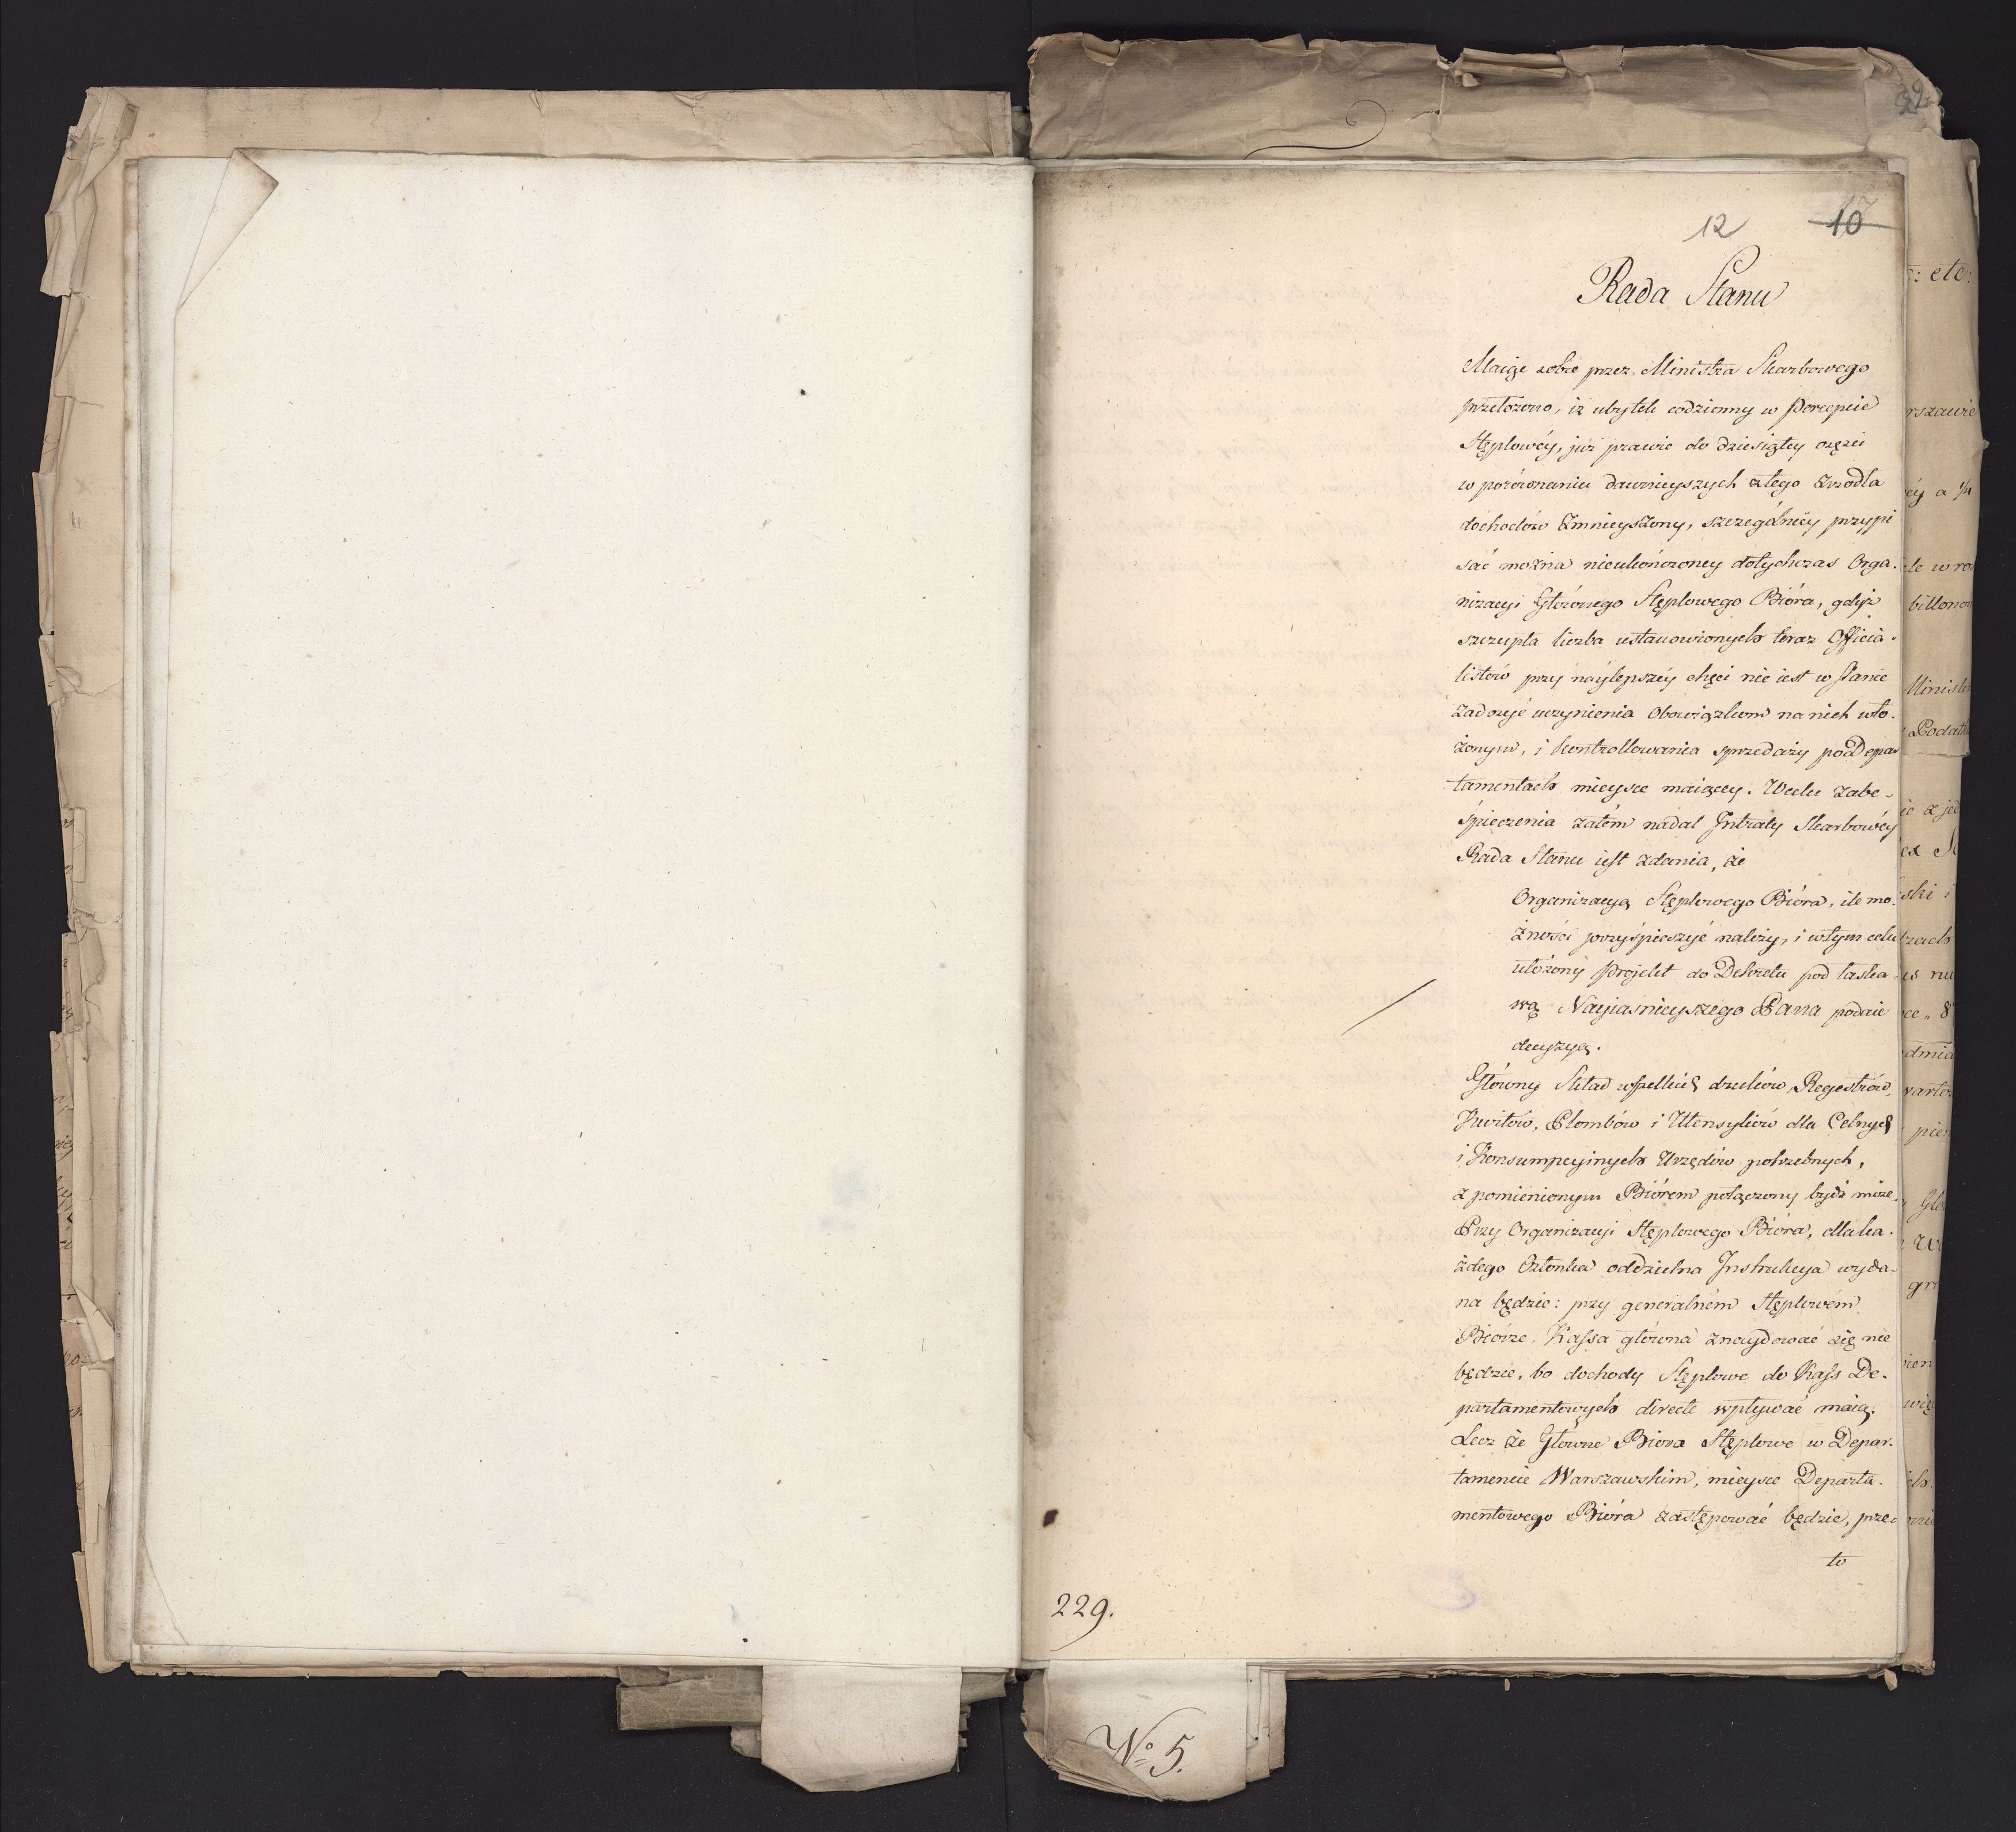 29
12 10
Rada Stanu
Maiąc sobie przez Ministra Skarbowego
przełożono, iż ubytek codzienny w Percepcie
Stęplowéy, już prawie do dziesiątey części
w porównaniu dawnieyszych z tego źrzodła
dochodów zmnieyszony, szczegółniéy przypi
sać można nieukończoney dotychczas Orga-
nizacyi Głównego Stęplowego Bióra, gdyż
szczupła liczba ustanowionych teraz Officia-
listów przy naylepszéy chęci nie iest w stanie
zadosyć uczynienia Obowiązkom na nich wło-
żonym, i kontrollowania sprzedaży po Depar
tamentach mieysce maiącey. W celu zabe-
śpieczenia zatém nadal Intraty Skarbowéy
Rada Stanu iest zdania, że
Organizacyą Stęplowego Bióra, ile mo-
żności przyśpieszyć należy, i w tym celu
ułożony Projekt do Dekretu pod łaska-
wą Nayiaśnieyszego Pana podaie
decyzyą.
Główny Skład wszelkich druków, Regestrów,
Kwitów, Plombów i Utensyliów dla Celnych
i Konsumpcyinych Urzędów potrzebnych,
z pomienionym Biórem połączony bydź może.
Przy Organizacyi Stęplowego Bióra, dla ka-
żdego Członka oddzielna Instrukcya wyda-
na będzie: przy generalném Stęplowém
Biórze, Kassa główna znaydować się nie
będzie, bo dochody Stęplowe do Kass De-
partamentowych directe wpływać maią.
Lecz że Główne Biora Stęplowe w Depar-
tamencie Warszawskim, mieysce Departa-
mentowego Bióra zastępować będzie, prze
to
229.
No 5.